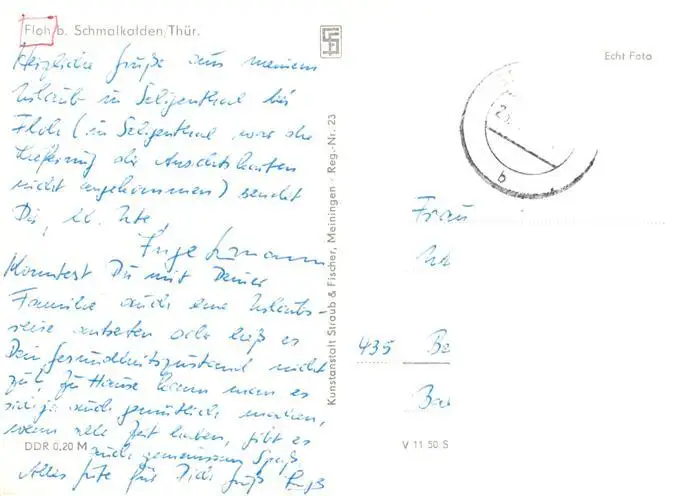 Floh b. Schmalkalden, Thür.
Herzliche Grüße aus meinem
Urlaub in Seligenthal bei
Floh (in Seligenthal war die
Lieferung der Ansichtskarten
nicht angekommen) sendet
Dir, lb. Ute,
Inge
Konntest Du mit Deiner
Familie auch eine Urlaubs-
reise antreten oder ließ es
Dein Gesundheitszustand nicht
zu? Zu Hause kann man es
sich ja auch gemütlich machen,
wenn alle Zeit haben, gibt es
auch gemeinsam Spaß
Alles Gute für Dich
DDR 0,20 M
Kunstanstalt Straub & Fischer, Meiningen · Reg.-Nr. 23
Echt Foto
b
Frau
435 Be
Ba
V 11 50 S